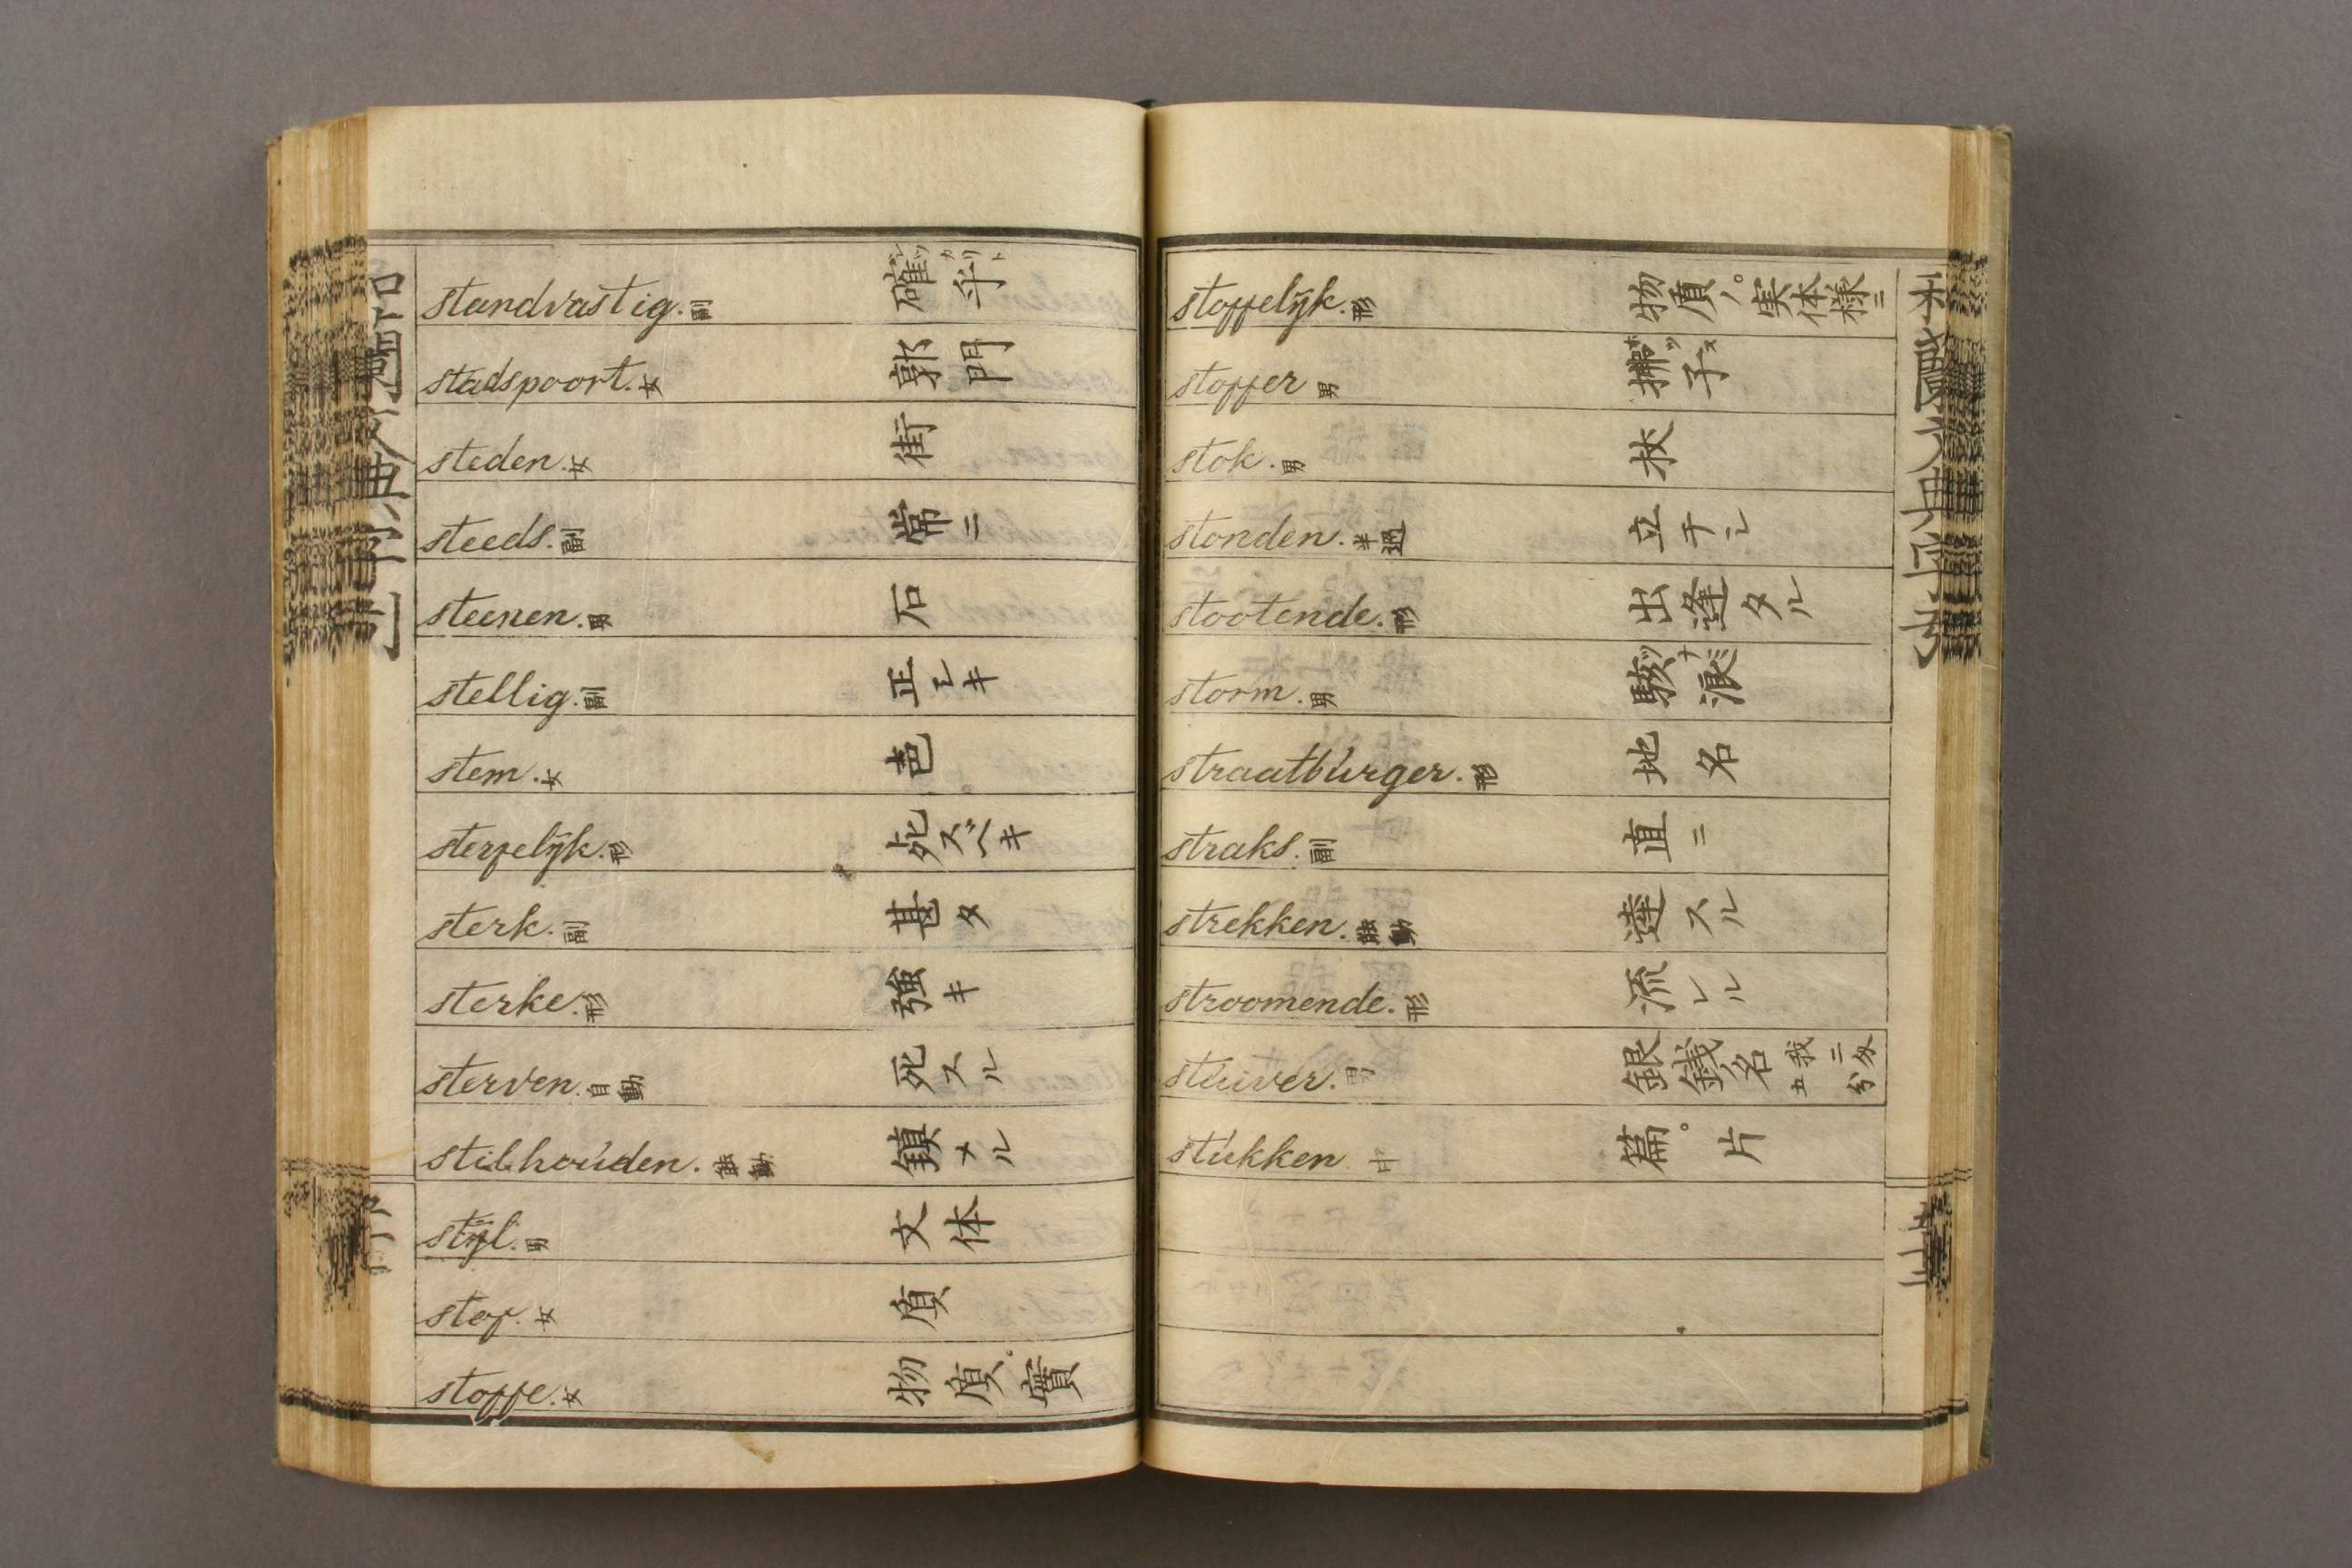 standvastig. 副 確乎 シッカリト
stadspoort. 女 郭門
steden. 女 街
steeds. 副 常ニ
steenen. 男 石
stellig. 副 正シキ
stem. 女
sterfelijk. 形 死スベキ
sterk. 副 甚タ
sterke. 形 強キ
sterven. 自動 死スル
stilhoúden. 能動 鎮メル
stijl. 男 文体
stof. 女 質
stoffe. 女 物質。實
stoffelijk. 形 物質ノ。実体様ニ
stoffer 男 拂子
stok. 男 杖
stonden. 半過 立チシ
stootende. 形 出逢タル
storm. 男 駭浪 ツナミ
straatbúrger. 形 地名
straks. 副 直ニ
strekken. 能動 達スル
stroomende. 形 流レル
stúiver. 男 銀銭ノ名 我二匁五分
stúkken 中 篇。片